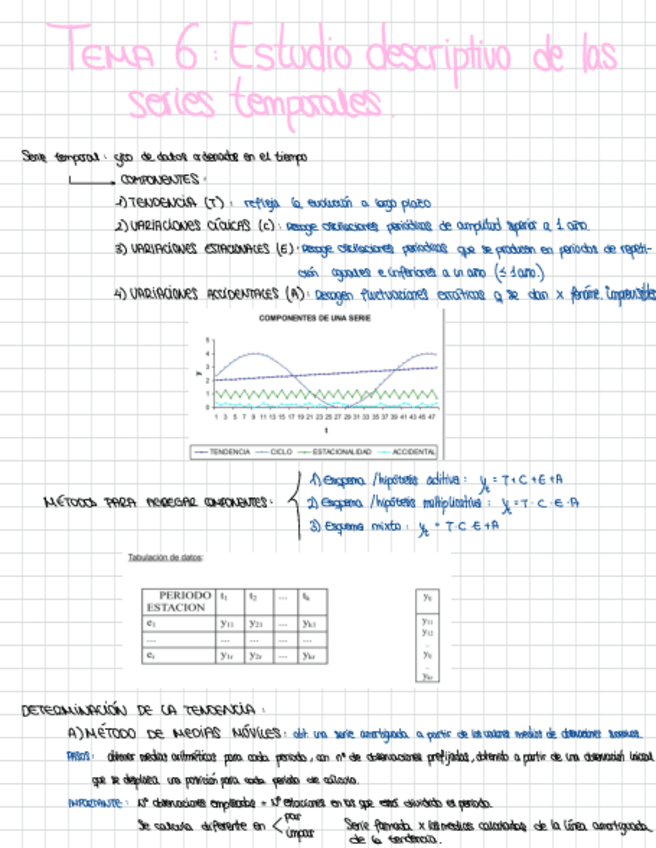 TEMA 6: Estudio descriptivo de las
series temporales
Serie temporal: gso de datos ordenados en el tiempo
COMPONENTES:
1) TENDENCIA (T): refleja la evolución a largo plazo
2) VARIACIONES CÍCLICAS (C): Recoge oscilaciones periódicas de amplitud superior a 1 año.
3) VARIACIONES ESTACIONALES (E): Recoge oscilaciones periódicas que se producen en periodos de repeti-
ción iguales e inferiores a un año (≤ 1 año.)
4) VARIACIONES ACCIDENTALES (A): Recogen fluctuaciones erráticas q se dan x fenóme. imprevisibles
COMPONENTES DE UNA SERIE
5
4
3
2
1
0
y
1 3 5 7 9 11 13 15 17 19 21 23 25 27 29 31 33 35 37 39 41 43 45 47
t
TENDENCIA CICLO ESTACIONALIDAD ACCIDENTAL
MÉTODOS PARA AGREGAR COMPONENTES:
1) Esquema /hipótesis aditiva: yt = T+C+E+A
2) Esquema /hipótesis multiplicativa: yt = T·C·E·A
3) Esquema mixto: yt = T·C·E+A
Tabulación de datos:
PERIODO t1 t2 ... tk
ESTACION
e1 y11 y21 ... yk1
... ... ... ... ...
er y1r y2r ... ykr
y11
y12
DETERMINACIÓN DE LA TENDENCIA:
A) MÉTODO DE MEDIAS MÓVILES: obt. una serie amortiguada a partir de los valores medios de observaciones sucesivas.
PASOS: obtener medias aritméticas para cada periodo, con nº de observaciones prefijadas, obtenido a partir de una observación inicial
que se desplaza una posición para cada periodo de cálculo.
IMPORTANTE: Nº observaciones empleadas = Nº estaciones en las que está dividido el periodo.
Se calcula diferente en par
impar
Serie formada x las medias calculadas de la línea amortiguada
de la tendencia.